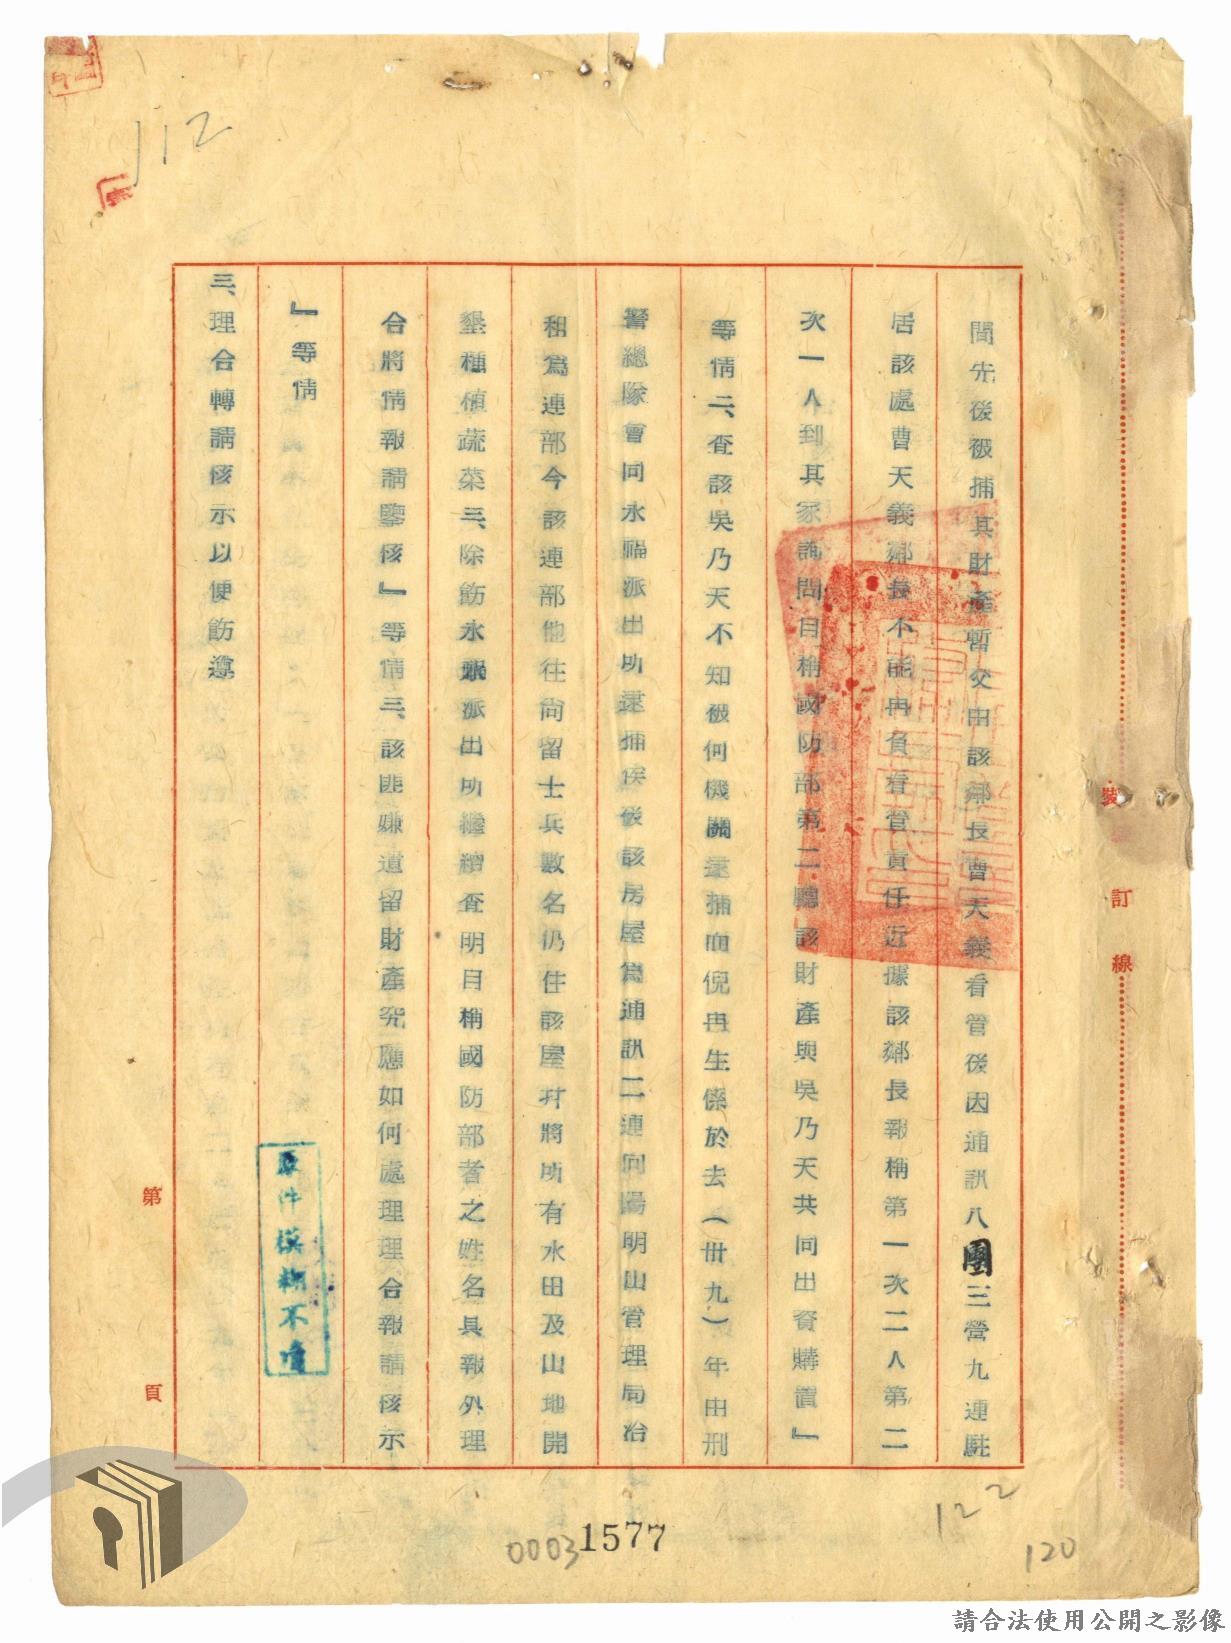 112
間先後被捕其財產暫交由該鄰長曹天義看管後因通訊八團三營九連駐
居該處曹天義鄰長不能再負看管責任近據該鄰長報稱第一次二人第二
次一人到其家詢問自稱國防部第二廳該財產與吳乃天共同出資購置』
等情二、查該吳乃天不知被何機關逮捕而倪冉生係於去(卅九)年由刑
警總隊會同永福派出所逮捕俟後該房屋為通訊二連向陽明山管理局洽
租為連部今該連部他往尚留士兵數名仍住該屋並將所有水田及山地開
墾種植蔬菜三、除飭永福派出所繼續查明自稱國防部者之姓名具報外理
合將情報請鑒核』等情三、該匪嫌遺留財產究應如何處理理合報請核示
』等情
三、理合轉請核示以便飭遵
原件模糊不清
裝 訂 線
第 頁
00031577
122
120
請合法使用公開之影像